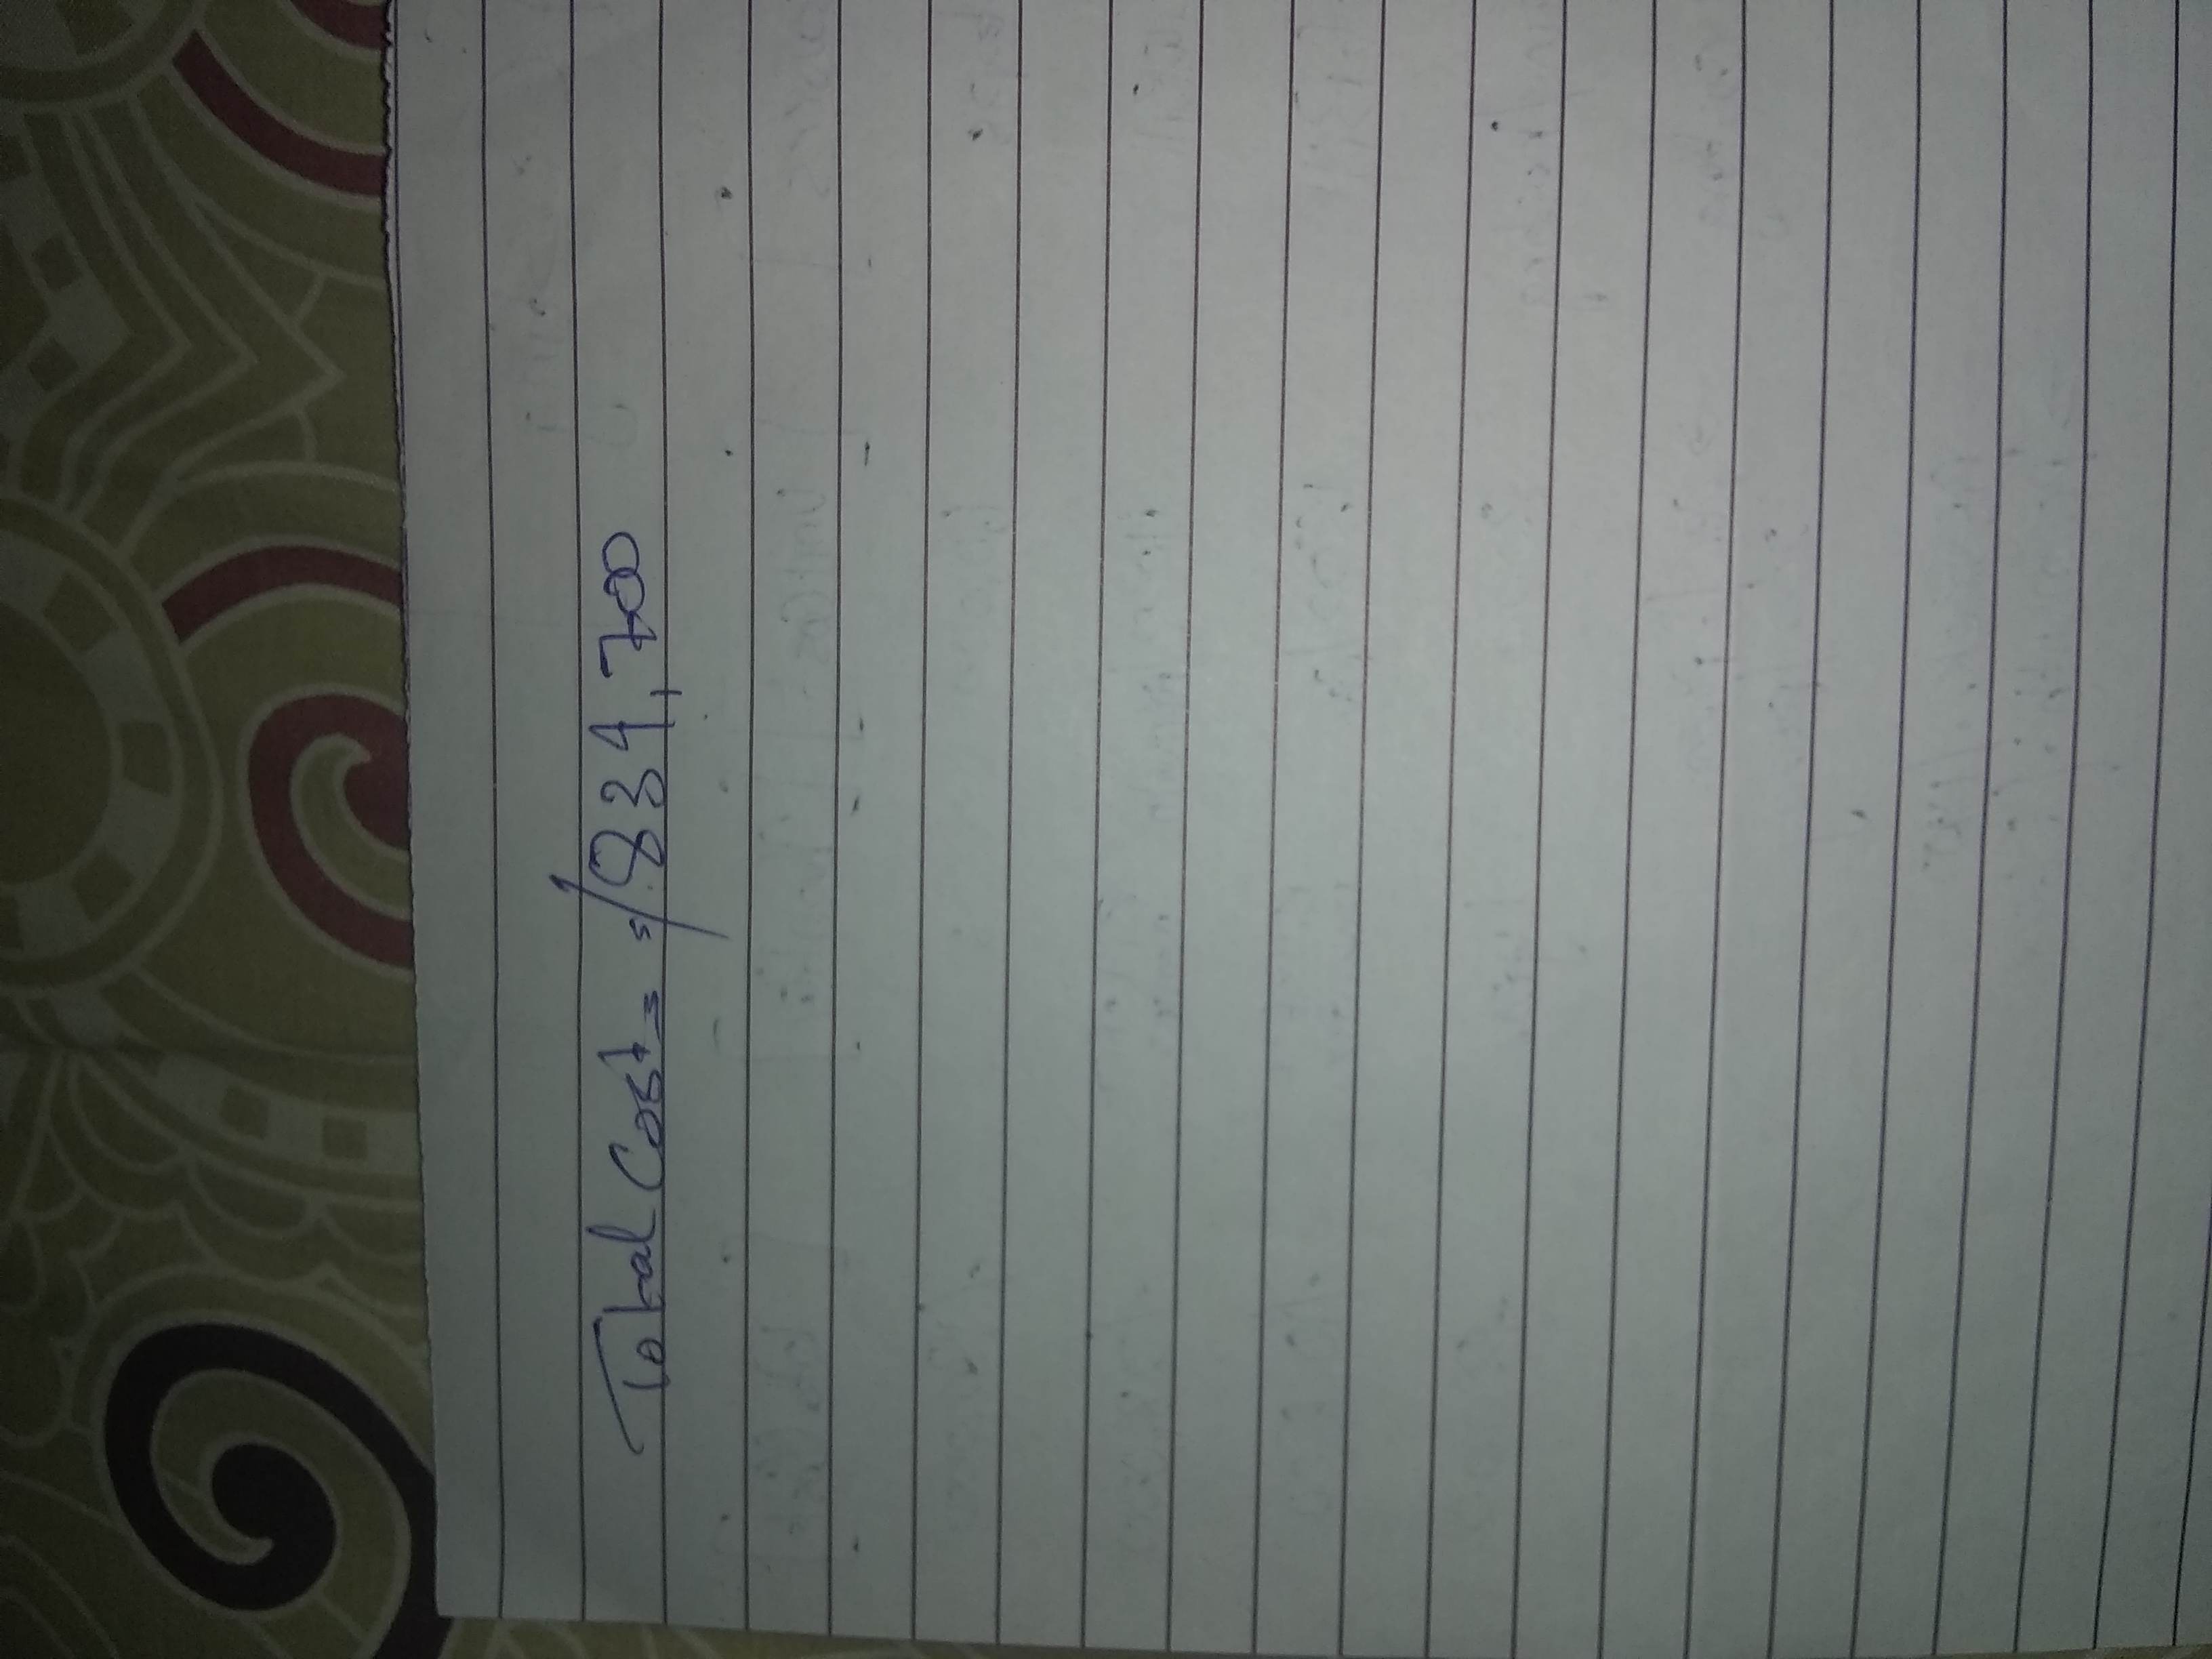 Total Cost = s/834,700